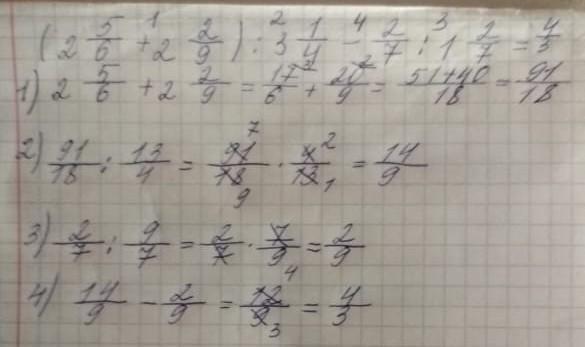 (2 5/6 + 2 2/9) : 3 1/4 - 2/7 : 1 2/7 = 4/3
1) 2 5/6 + 2 2/9 = 17/6 + 20/9 = 51+40/18 = 91/18
2) 91/18 : 13/4 = 91/18 · 4/13 = 14/9
3) 2/7 : 9/7 = 2/7 · 7/9 = 2/9
4) 14/9 - 2/9 = 12/9 = 4/3